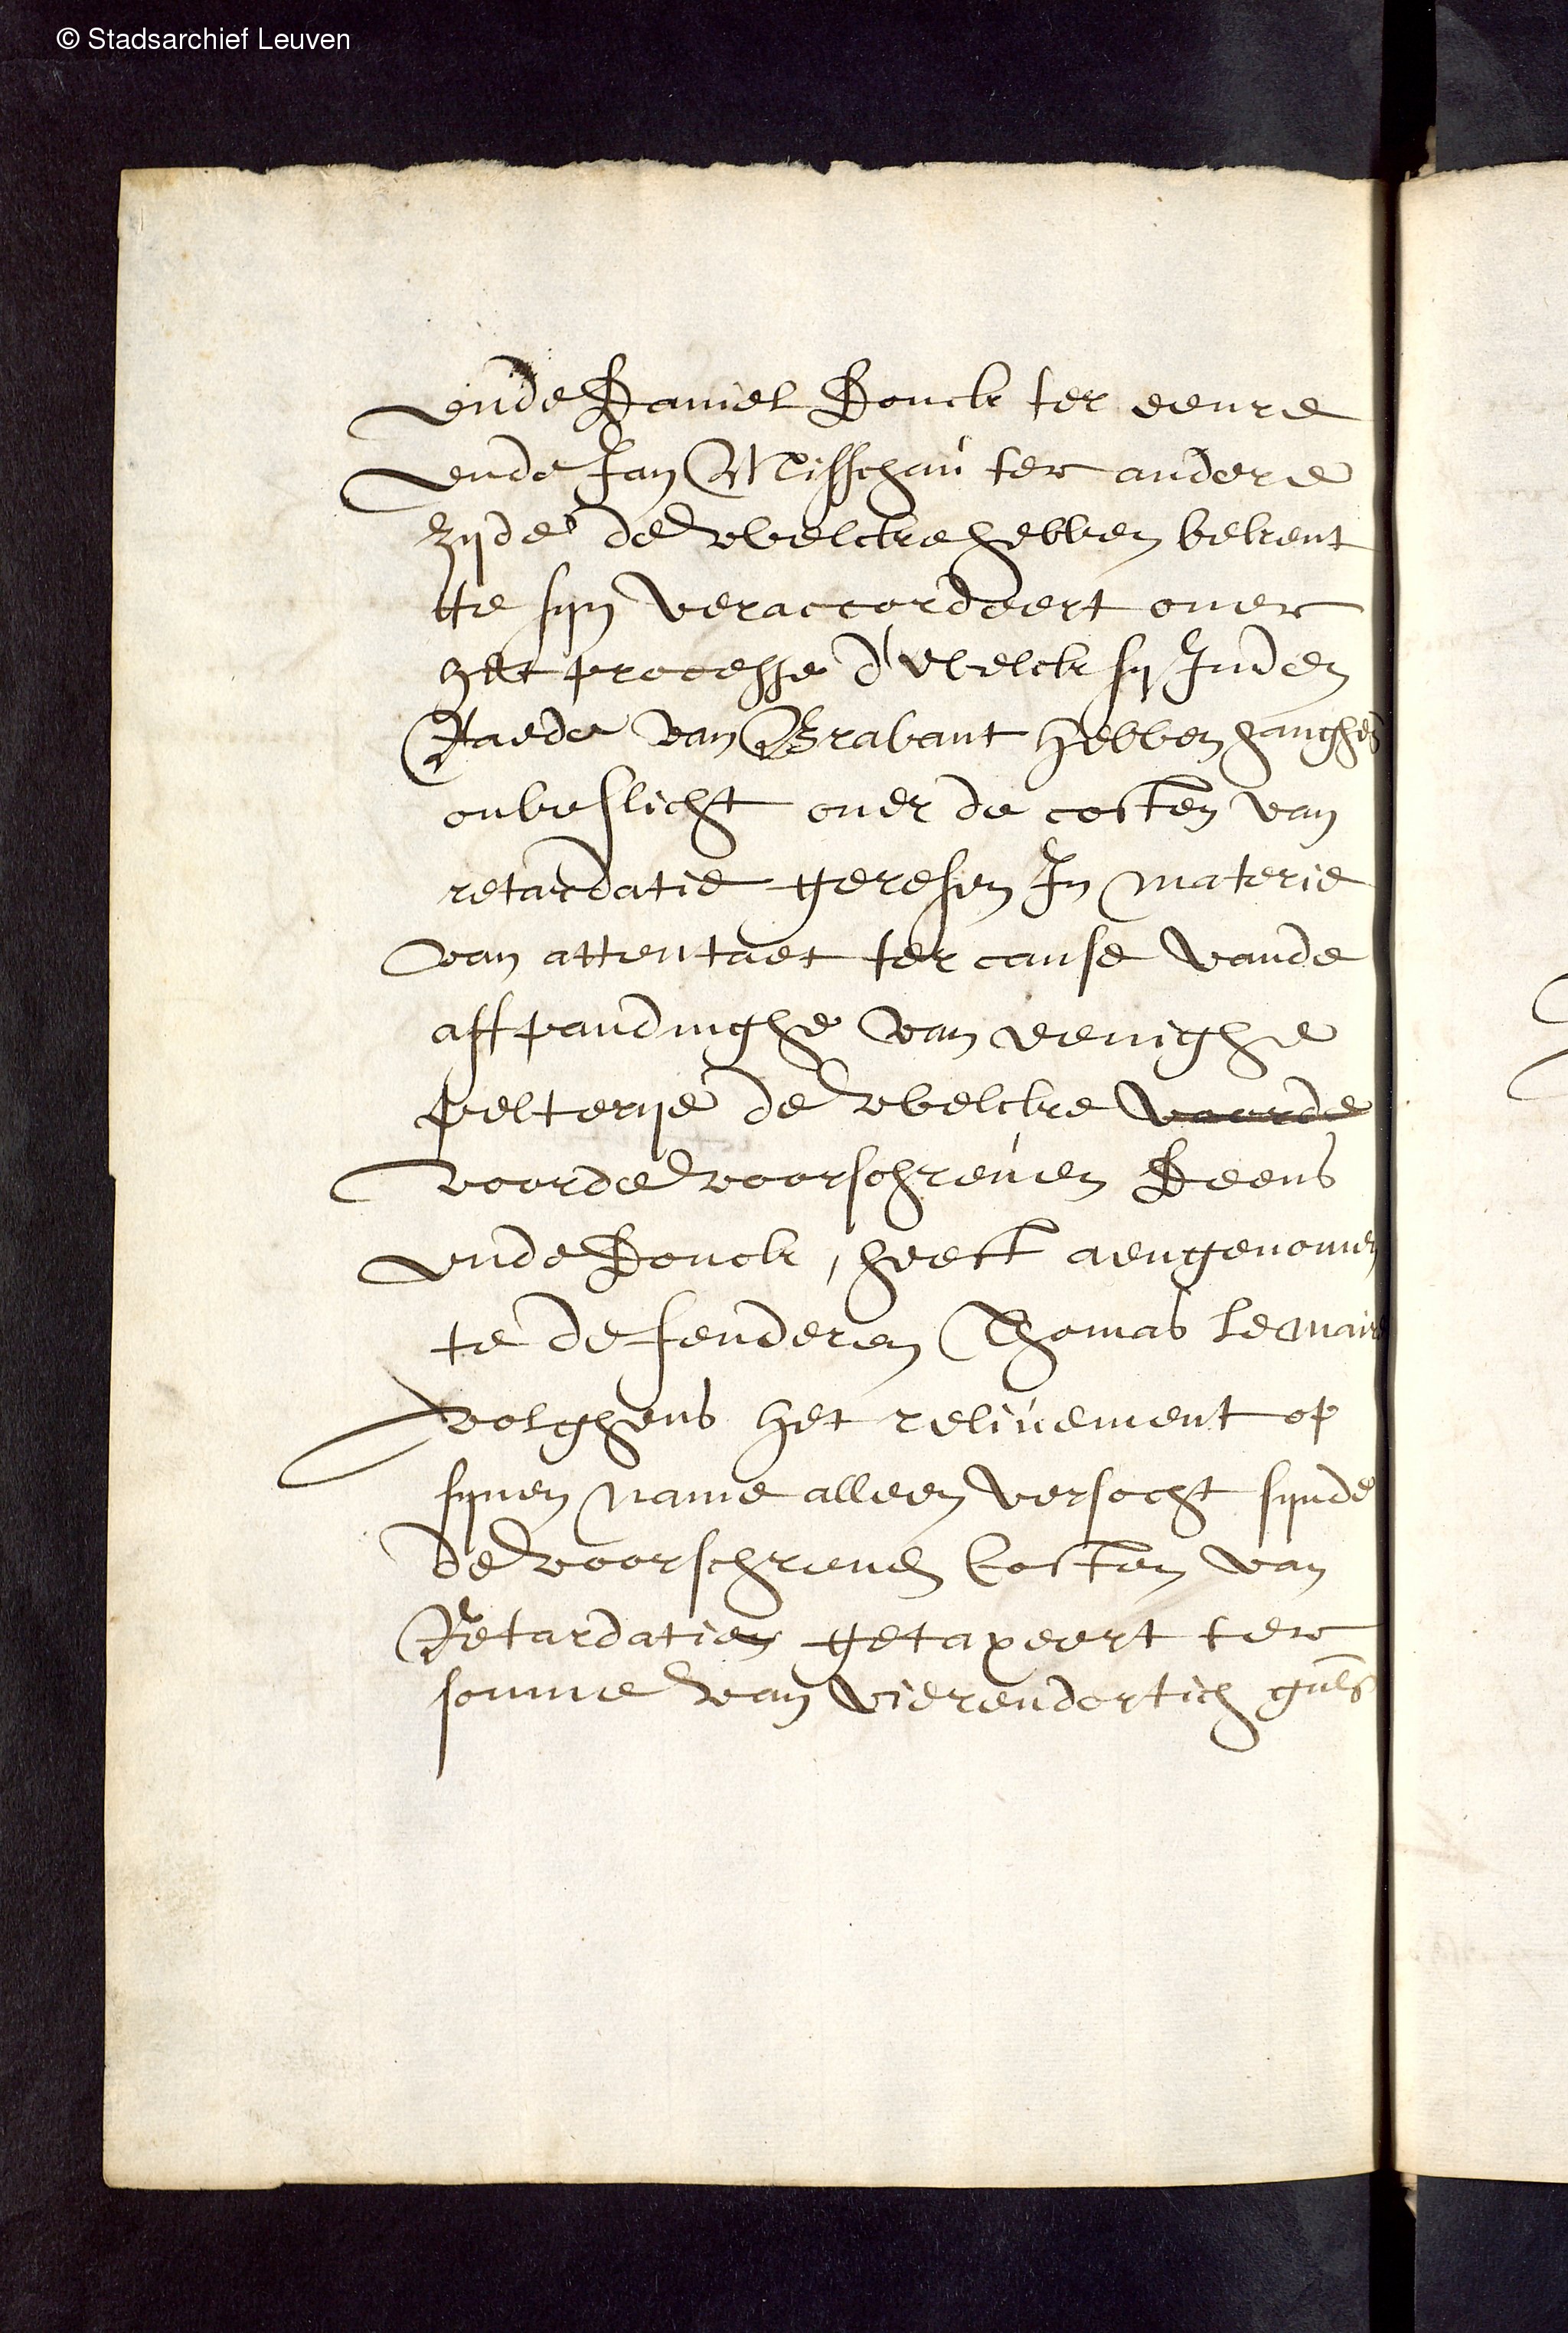 © Stadsarchief Leuven
ende Daniel Donck ter eenre
ende Jan Misschau ter andere
zyde de welcke hebben bekent
te syn veraccordeert over
het processe d'welck sy Inden
Raede van Brabant hebben hanghen
onbeslicht over de costen van
retardatie geresen In materie
van attentaet ter cause vande
affpandinghe van eenighe
pelterye de welcke voorde
voorde voorschreven Deens
ende Donck, heeft aengenomen
te defenderen Thomas Lemaire
volghens het relivement op
synen name alleen versocht synde
de voorschreven Costen van
Retardatien getaxeert ter
somme van vierendertich guls